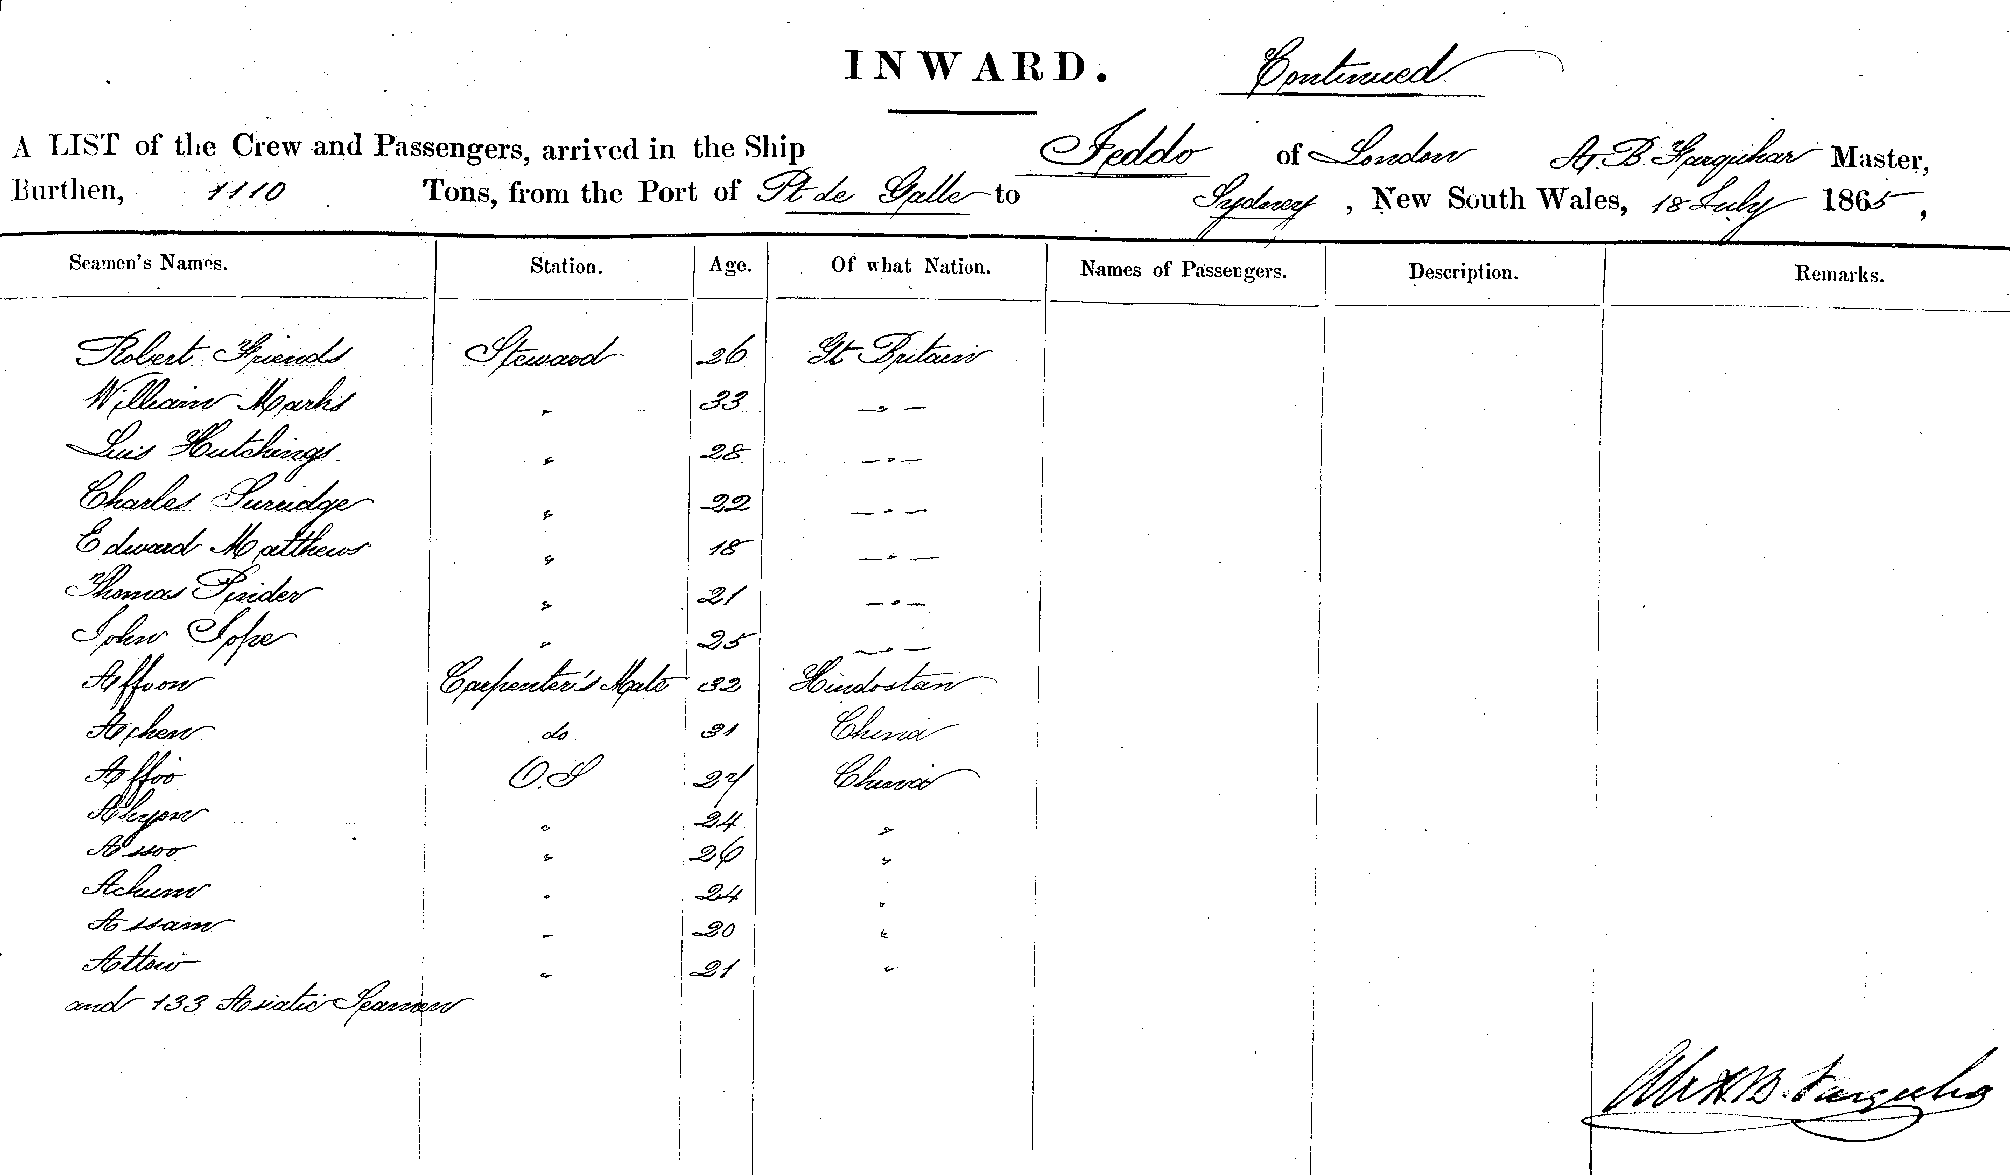 INWARD. Continued
A LIST of the Crew and Passengers, arrived in the Ship Jeddo of London A. B. Farquhar Master,
Burthen, 1110 Tons, from the Port of Pt de Galle to Sydney, New South Wales, 18 July 1865,
Seamen's Names. Station. Age. Of what Nation. Names of Passengers. Description. Remarks.
Robert Friends Steward 26 Gt Britain
William Marks " 33 — " —
Luis Hutchings " 28 — " —
Charles Surridge " 22 — " —
Edward Matthews " 18 — " —
Thomas Pinder " 21 — " —
John Jope " 25 — " —
Affoon Carpenter's Mate 32 Hindostan
Achew do 31 China
Affoo O.S 27 China
Ahyon " 24 "
Assoo " 26 "
Achum " 24 "
Assam " 20 "
Attow " 21 "
and 133 Asiatic Seamen
Alexr B. Farquhar